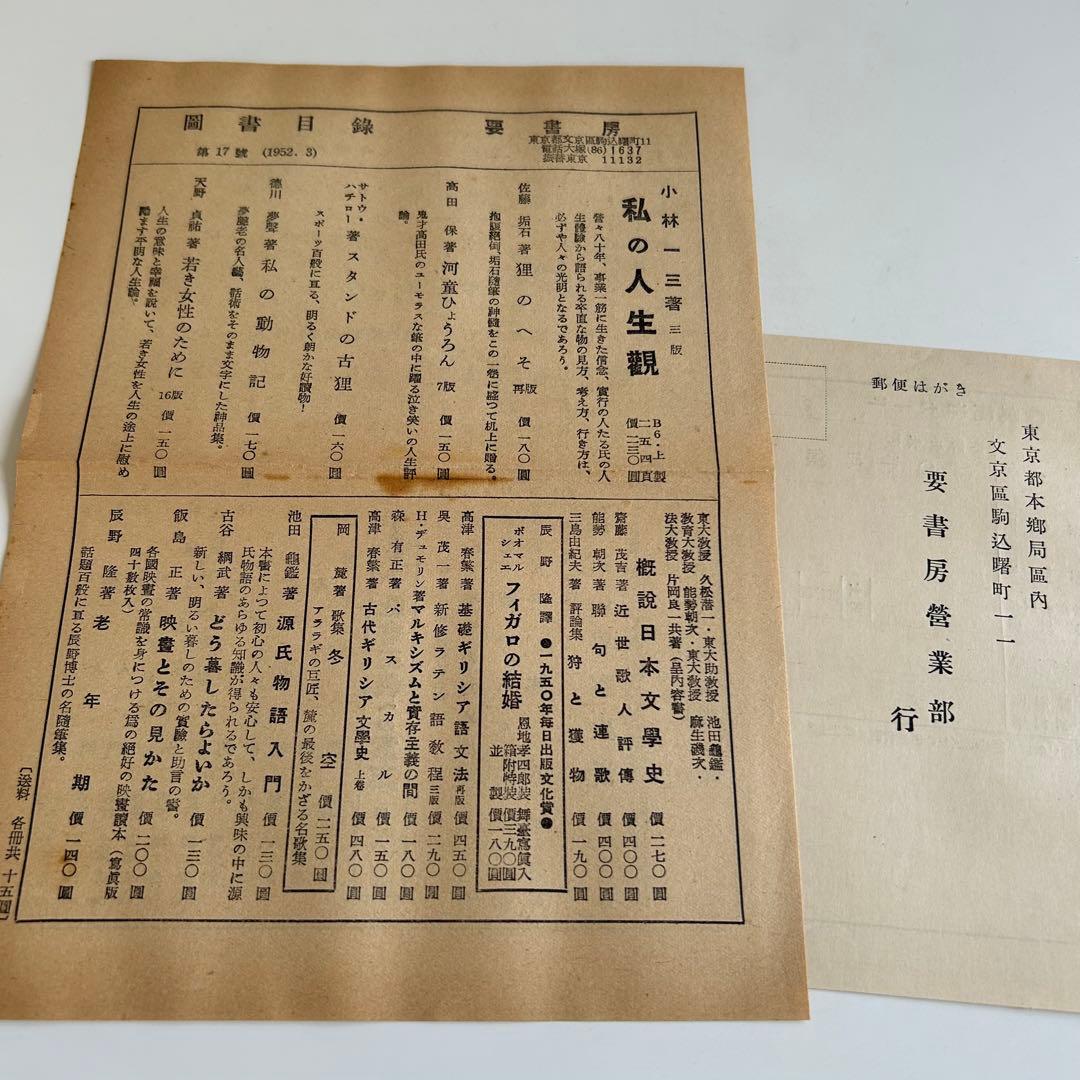 圖書目錄
要書房
第17號 (1952.3)
東京都文京區駒込曙町11
電話大塚(86)1637
振替東京 11132
小林一三著 三版
私の人生觀
B6・上製
二五四頁
價二三〇圓
營々八十年、事業一筋に生きた信念、實行の人たる氏の人
生體驗から語られる卒直な物の見方、考え方、行き方は、
必ずや人々の光明となるであろう。
佐藤垢石著 狸のへそ 再版 價一八〇圓
抱腹絕倒、垢石隨筆の神髓をこの一卷に盛つて机上に贈る。
高田保著 河童ひょうろん 7版 價一五〇圓
鬼才高田氏のユーモラスな筆の中に躍る泣き笑いの人生評
論。
サトウ・ハチロー著 スタンドの古狸 價一六〇圓
スポーツ百般に亘る、明るく朗かな好讀物!
德川夢聲著 私の動物記 價一七〇圓
夢聲老の名人藝、話術をそのまま文字にした神品集。
天野貞祐著 若き女性のために 16版 價一五〇圓
人生の意味と幸福を說いて、若き女性を人生の途上に慰め
勵ます平明な人生論。
東大敎授 久松潛一・東大助敎授 池田龜鑑・
敎育大敎授 能勢朝次・東大敎授 麻生磯次・
法大敎授 片岡良一共著(呈內容書)
槪說日本文學史 價二七〇圓
齋藤茂吉著 近世歌人評傳 價四〇〇圓
能勢朝次著 聯句と連歌 價四〇〇圓
三島由紀夫著 評論集 狩と獲物 價一九〇圓
●一九五〇年每日出版文化賞●
ボオマルシェエ
辰野隆譯 フィガロの結婚
恩地孝四郎裝 舞臺寫眞入
箱附特裝 價三九〇圓
並製 價一八〇圓
高津春繁著 基礎ギリシア語文法 再版 價四五〇圓
吳茂一著 新修ラテン語敎程 三版 價二九〇圓
H・デュモリン著 マルキシズムと實存主義の間 價一八〇圓
森有正著 パスカル 價一五〇圓
高津春繁著 古代ギリシア文學史 上卷 價四八〇圓
岡麓著 歌集 冬空 價二五〇圓
アララギの巨匠、麓の最後をかざる名歌集
池田龜鑑著 源氏物語入門 價一三〇圓
本書によつて初心の人々も安心して、しかも興味の中に源
氏物語のあらゆる知識が得られるであろう。
古谷綱武著 どう暮したらよいか 價一三〇圓
新しい、明るい暮しのための實驗と助言の書。
飯島正著 映畫とその見かた 價二〇〇圓
各國映畫の常識を身につける爲の絕好の映畫讀本(寫眞版
四十數枚入)
辰野隆著 老年期 價一四〇圓
話題百般に亘る辰野博士の名隨筆集。
〔送料 各冊共 十五圓〕
郵便はがき
東京都本鄕局區內
文京區駒込曙町一一
要書房營業部
行